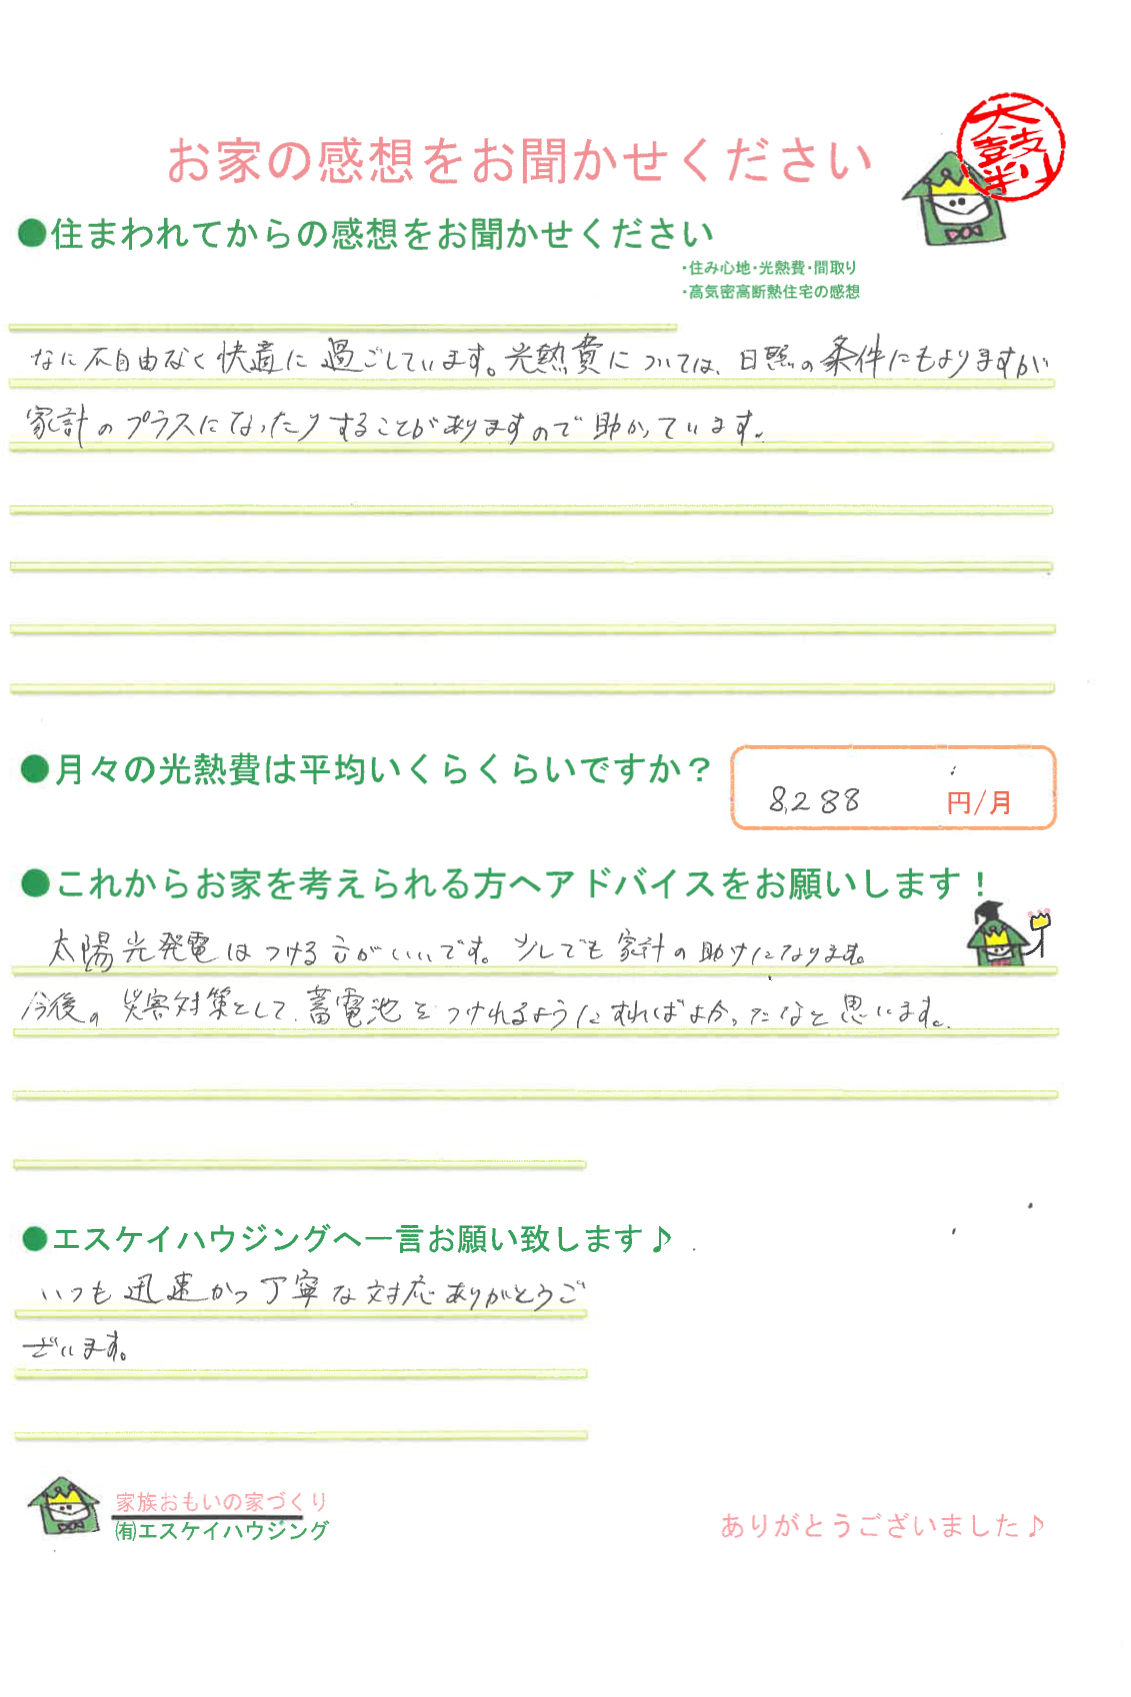 太鼓判
お家の感想をお聞かせください
●住まわれてからの感想をお聞かせください
・住み心地・光熱費・間取り
・高気密高断熱住宅の感想
なに不自由なく快適に過ごしています。光熱費については、日照の条件にもよりますが
家計のプラスになったりすることがありますので助かっています。
●月々の光熱費は平均いくらくらいですか？
8,288 円/月
●これからお家を考えられる方へアドバイスをお願いします！
太陽光発電はつける方がいいです。少しでも家計の助けになります。
今後の災害対策として、蓄電池をつけれるようにすればよかったなと思います。
●エスケイハウジングへ一言お願い致します♪
いつも迅速かつ丁寧な対応ありがとうご
ざいます。
家族おもいの家づくり
㈲エスケイハウジング
ありがとうございました♪